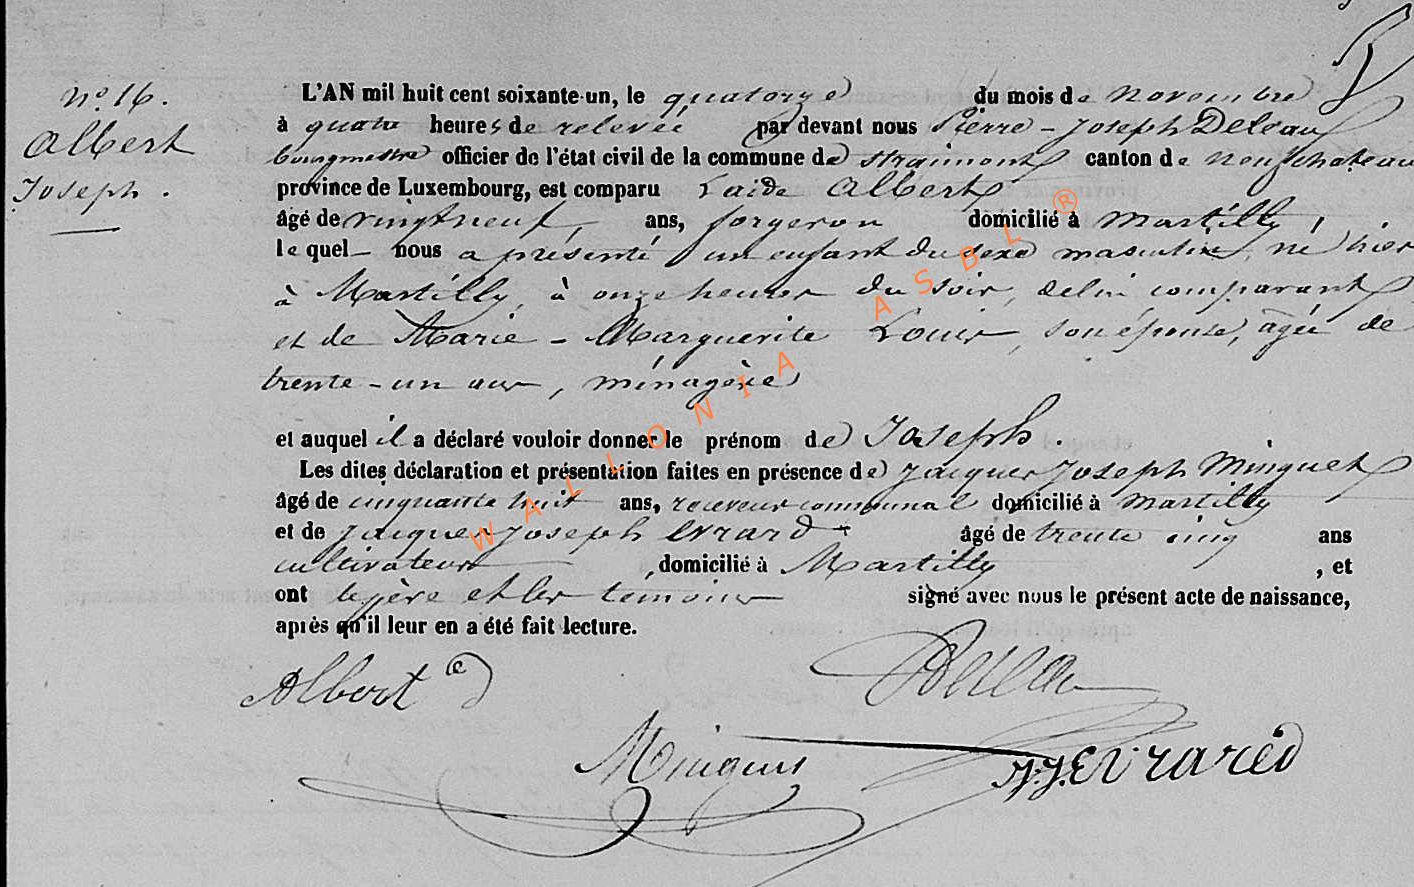 N.° 16.
Albert
Joseph.
L'AN mil huit cent soixante-un, le quatorze du mois de novembre
à quatre heures de relevée par devant nous Pierre-Joseph Deleau
bourgmestre officier de l'état civil de la commune de Straimont canton de neufchateau
province de Luxembourg, est comparu Albert
âgé de vingt neuf, ans, forgeron domicilié à Martilly,
lequel nous a présenté un enfant du sexe masculin, né hier
à Martilly, à onze heures du soir, de lui comparant
et de Marie-Marguerite Louis, son épouse, âgée de
trente-un ans, ménagère
et auquel il a déclaré vouloir donner le prénom de Joseph.
Les dites déclaration et présentation faites en présence de Jacques Joseph Minguet
âgé de cinquante huit ans, receveur communal domicilié à Martilly
et de Jacques Joseph Evrard âgé de trente cinq ans
cultivateur, domicilié à Martilly, et
ont le père et les temoins signé avec nous le présent acte de naissance,
après qu'il leur en a été fait lecture.
Albert
Deleau
Minguet
J.J. Evrard
WALLONIA ASBL ®